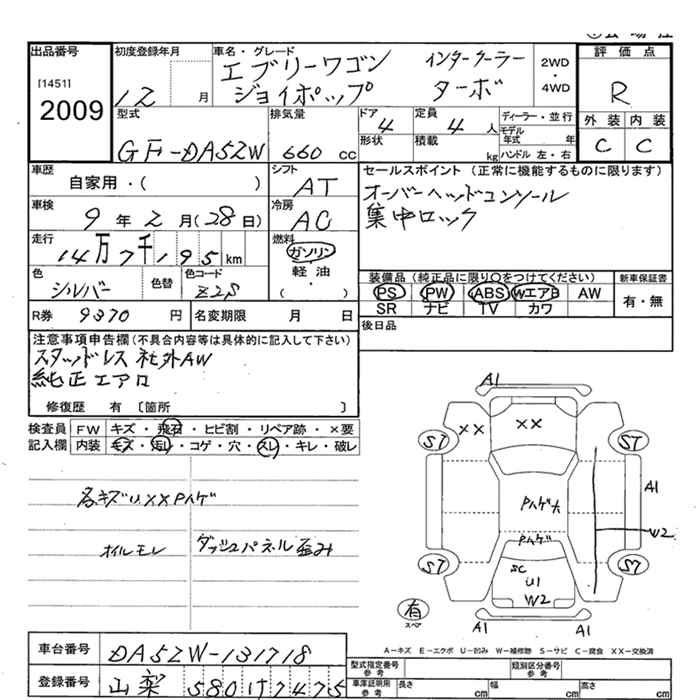 出品番号
[1451]
2009
初度登録年月
12 月
車名・グレード
エブリーワゴン インタークーラー
ジョイポップ ターボ
2WD
・
4WD
評価点
R
外装 内装
C C
型式
GF-DA52W
排気量
660 cc
ドア
4
定員
4 人
形状
積載
kg
ディーラー・並行
モデル
年式 年
ハンドル 左・右
車歴
自家用・( )
シフト
AT
セールスポイント(正常に機能するものに限ります)
オーバーヘッドコンソール
集中ロック
車検
9 年 2 月 (28 日)
冷房
AC
走行
14万7千195 km
燃料
ガソリン
軽油・
( )
色
シルバー
色替
色コード
Z2S
装備品(純正品に限り○をつけてください)
PS PW ABS WエアB AW
SR ナビ TV カワ
新車保証書
有・無
R券 9370 円
名変期限 月 日
後日品
注意事項申告欄(不具合内容等は具体的に記入して下さい)
スタッドレス 社外AW
純正エアロ
修復歴 有 〔箇所 〕
検査員
記入欄
FW キズ・飛石・ヒビ割・リペア跡・×要
内装 キズ・汚レ・コゲ・穴・スレ・キレ・破レ
各キズU××Pハゲ
オイルモレ ダッシュパネル歪み
A1
×× ××
ST ST
A1
Pハゲ大
W2
Pハゲ
ST ST
SC
U1
W2
有
スペア
A1 A1
A－キズ E－エクボ U－凹み W－補修跡 S－サビ C－腐食 XX－交換済
車台番号 DA52W-131718
登録番号 山梨 580 17475
型式指定番号
参考
類別区分番号
参考
車庫証明用
参考
長さ cm 幅 cm 高さ cm